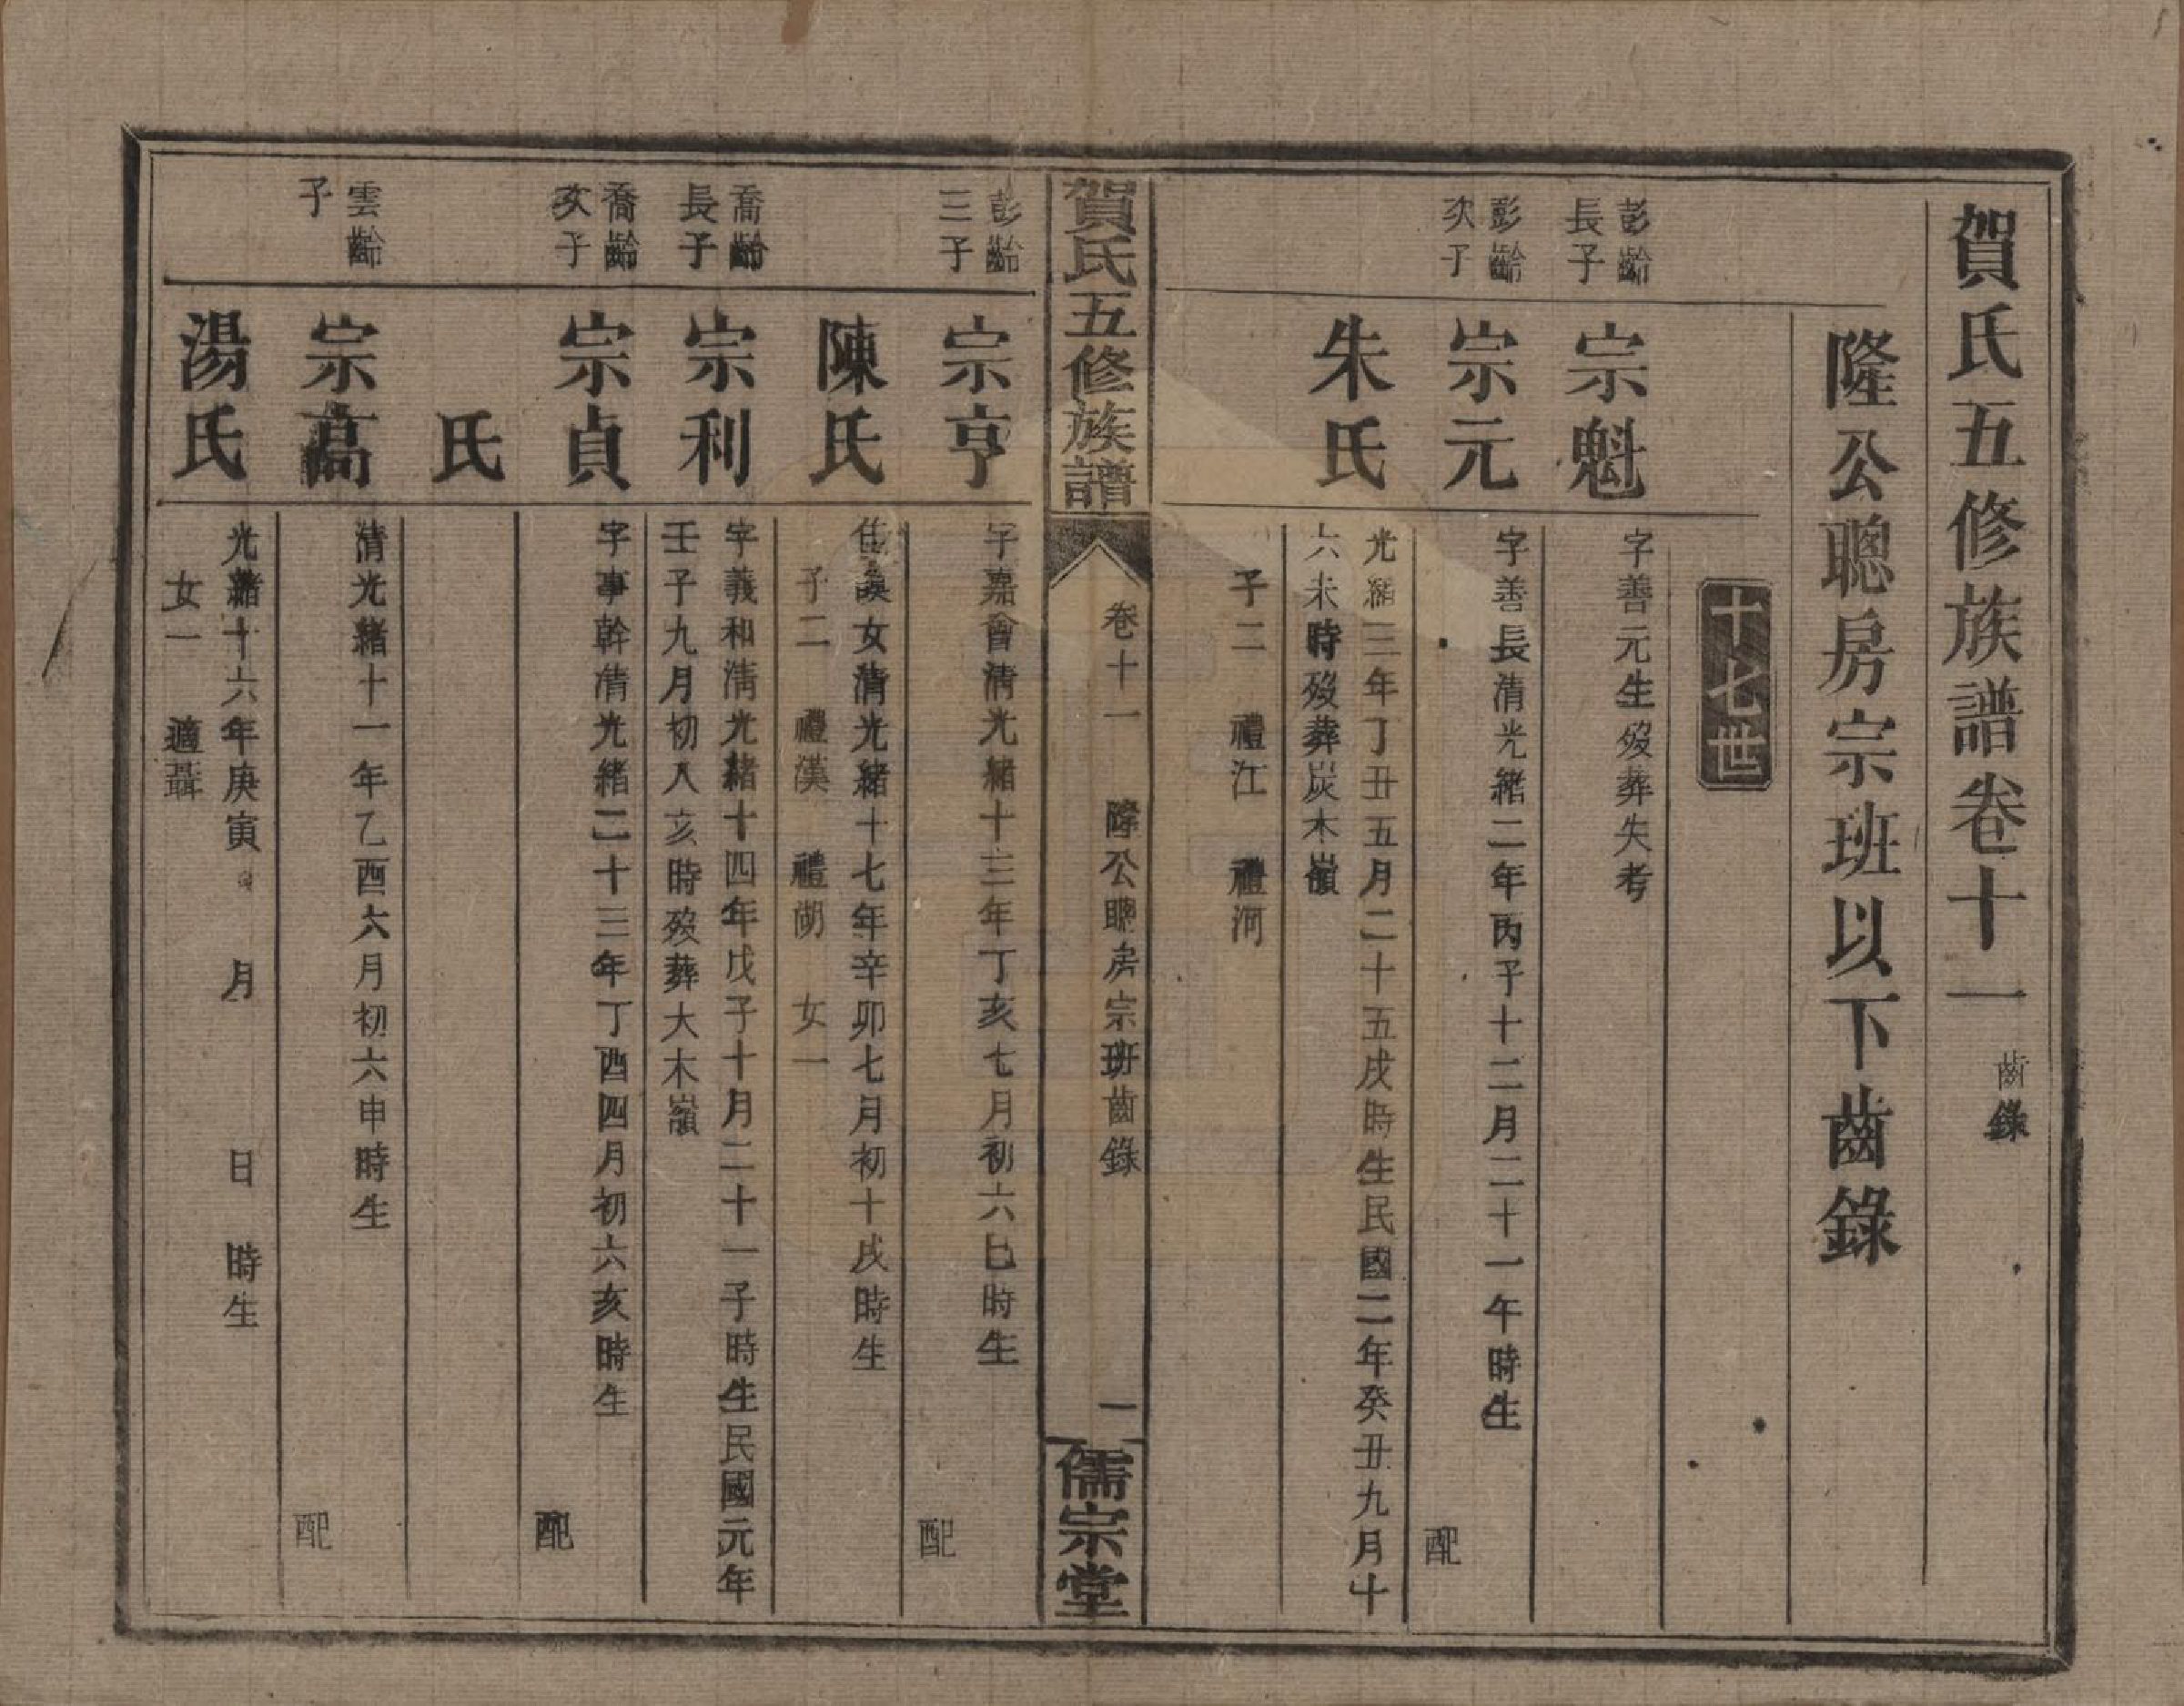 賀氏五修族譜卷十一 齒錄
隆公聰房宗班以下齒錄
十七世
彭齡
長子
宗魁
字善元生歿葬失考
彭齡
次子
宗元
字善長清光緒二年丙子十二月二十一午時生
配
朱氏
光緒三年丁丑五月二十五戌時生民國二年癸丑九月十
六未時歿葬炭木嶺
子二 禮江 禮河
賀氏五修族譜
卷十一 隆公聰房宗班齒錄
一
儒宗堂
彭齡
三子
宗亨
字嘉會清光緒十三年丁亥七月初六巳時生
配
陳氏
女清光緒十七年辛卯七月初十戌時生
子二 禮漢 禮湖 女一
喬齡
長子
宗利
字義和清光緒十四年戊子十月二十一子時生民國元年
壬子九月初八亥時歿葬大木嶺
喬齡
次子
宗貞
字事幹清光緒二十三年丁酉四月初六亥時生
配
氏
雲齡
子
宗高
清光緒十一年乙酉六月初六申時生
配
湯氏
光緒十六年庚寅 月 日 時生
女一 適聶